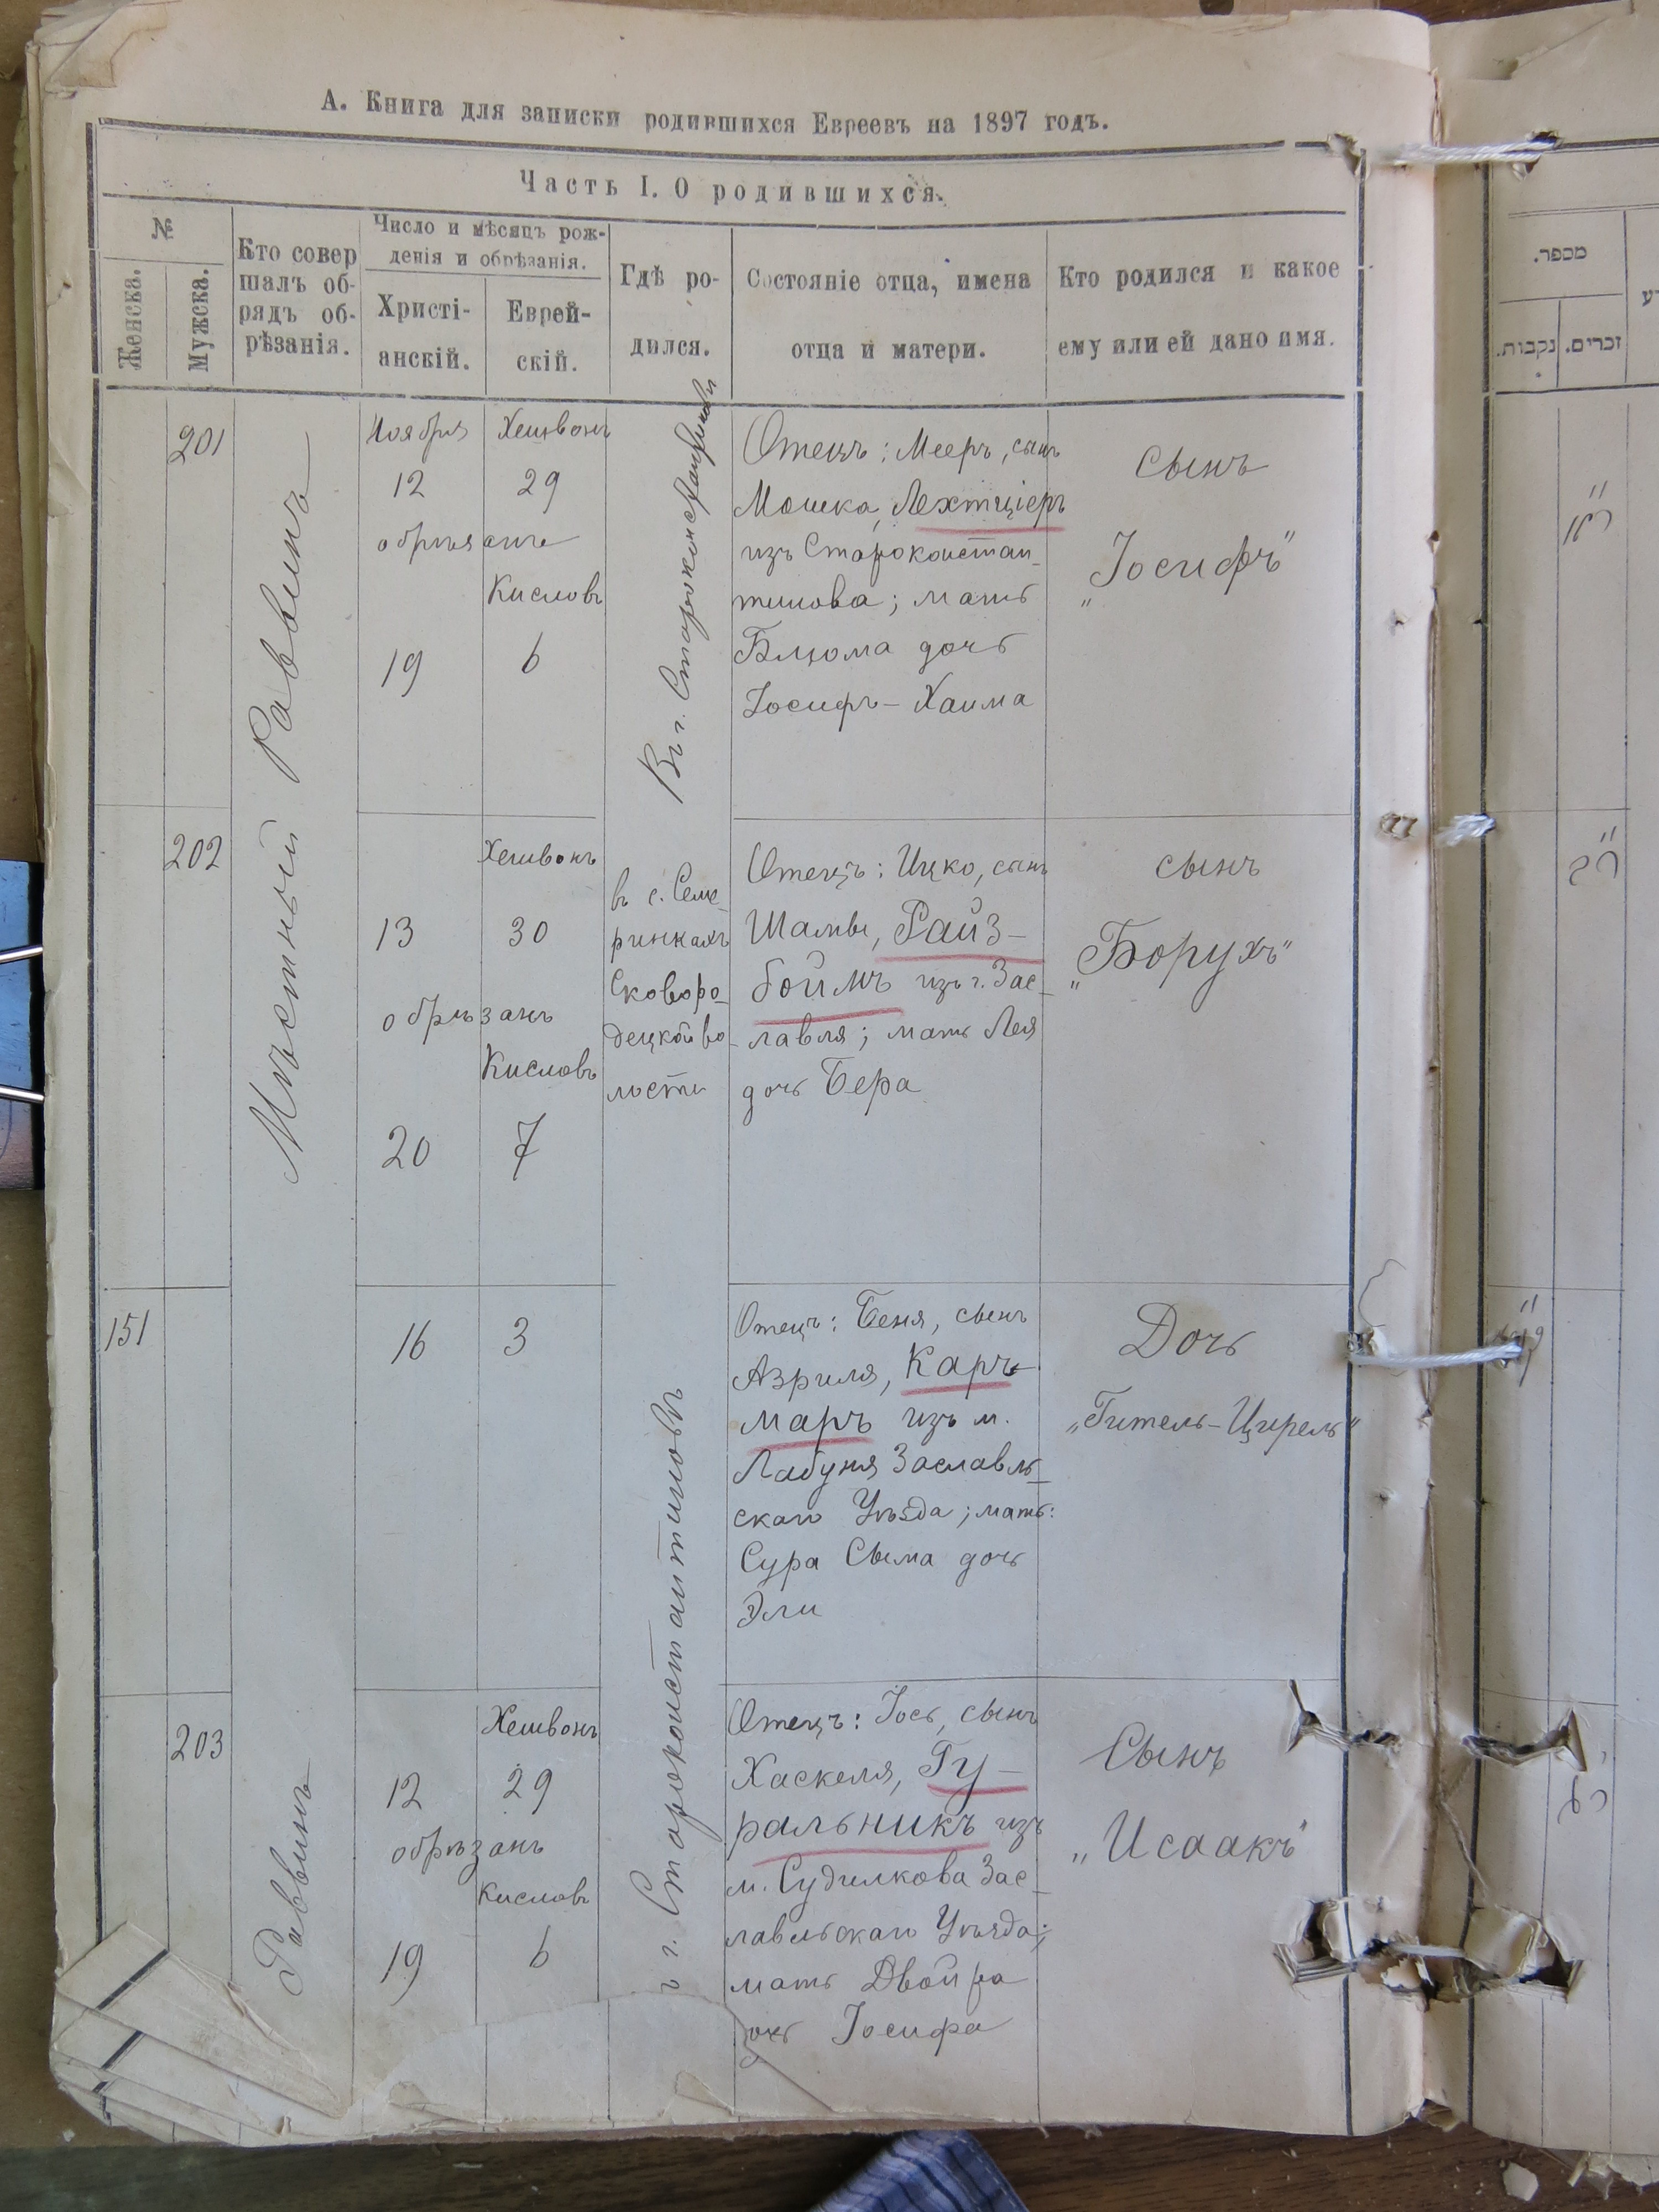 А. Книга для записки родившихся Евреевъ на 1897 годъ.
Часть I. О родившихся.
№
Женска.
Мужска.
Кто совер
шалъ об-
рядъ об-
рѣзанія.
Число и мѣсяцъ рож-
денія и обрѣзанія.
Христі-
анскій.
Еврей-
скій.
Гдѣ ро-
дился.
Состояніе отца, имена
отца и матери.
Кто родился и какое
ему или ей дано имя.
201
Мѣстный Раввинъ
Ноября
12
обрѣзанъ
19
Хешвонъ
29
Кисловъ
6
Въ г. Староконстантиновѣ
Отецъ: Мееръ, сынъ
Мошка, Лехтціеръ
изъ Староконстан-
тинова; мать
Блюма дочь
Іосифъ-Хаима
Сынъ
"Іосифъ"
202
13
обрѣзанъ
20
Хешвонъ
30
Кисловъ
7
въ с. Семе-
ринкахъ
Сковоро-
децкой во-
лости
Отецъ: Ицко, сынъ
Шамы, Райз-
боймъ изъ г. Зас-
лавля; мать Лея
дочь Бера
сынъ
"Борухъ"
151
16
3
г. Староконстантиновѣ
Отецъ: Беня, сынъ
Азриля, Каръ-
маръ изъ м.
Лабуня Заславль-
скаго Уѣзда; мать:
Сура Сыма дочь
Эли
Дочь
"Гитель-Цирель"
203
Раввинъ
12
обрѣзанъ
19
Хешвонъ
29
Кисловъ
6
Отецъ: Іось, сынъ
Хаскеля, Гу-
ральникъ изъ
м. Судилкова Зас-
лавльскаго Уѣзда;
мать Двойра
дочь Іосифа
Сынъ
"Исаакъ"
מספר.
זכרים.
נקבות.